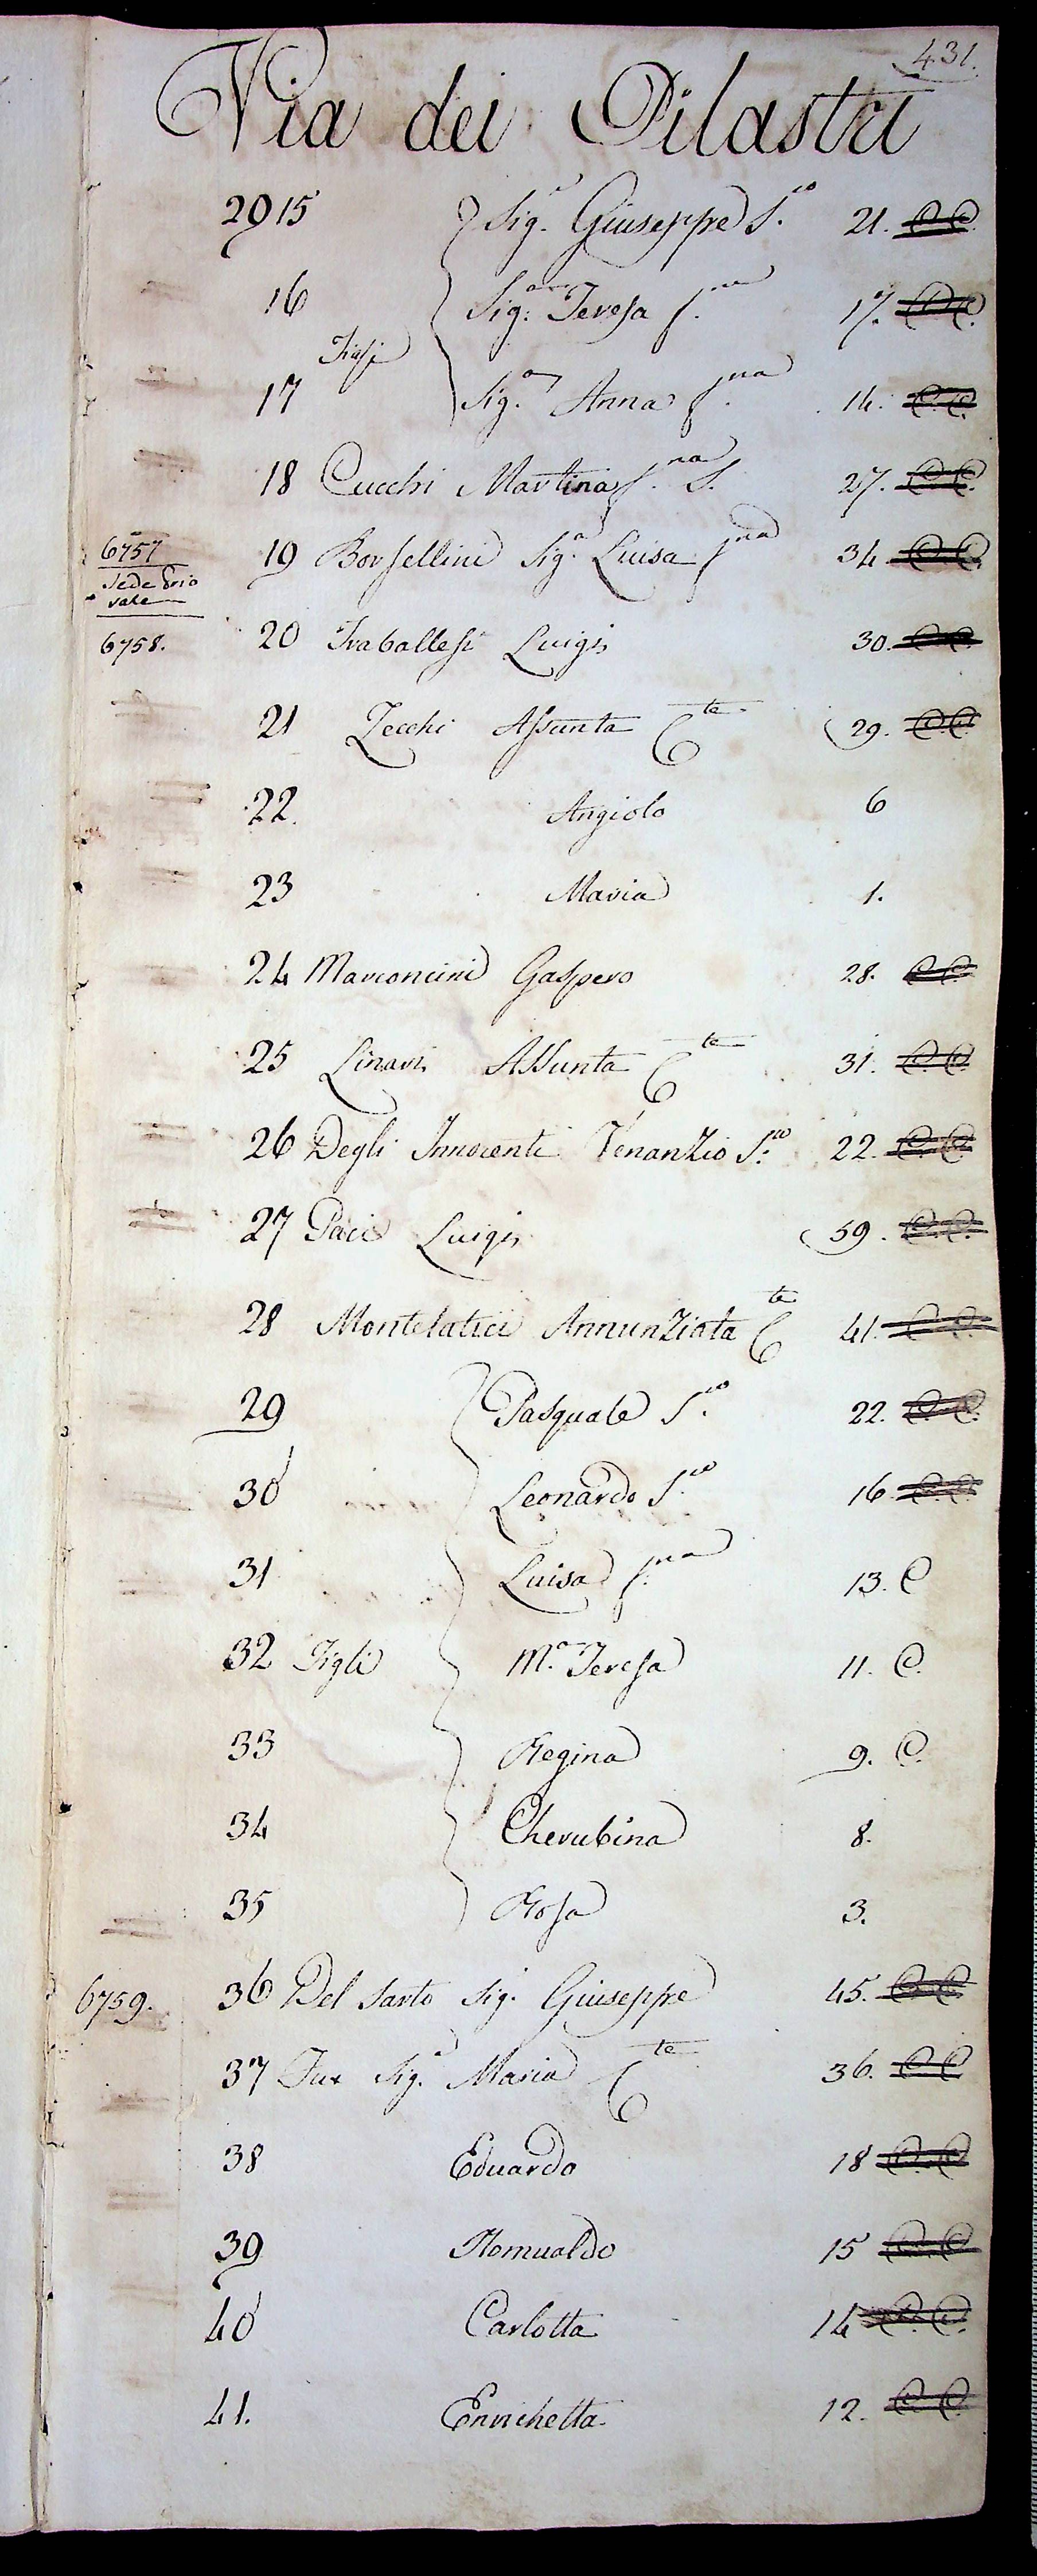 431.
Via dei Pilastri
2915 Sig.r Giuseppe S.co 21. C.C.
16 Sig.a Teresa f.na 17. C.C.
Figli
17 Sig.a Anna f.na 14. C.C.
18 Cucchi Martina f.na S. 27. C.C.
6757
Sede Trio
vale
19 Borsellini Sig.a Luisa f.na 34 C.C.
6758. 20 Traballesi Luigi 30. C.C.
21 Zecchi Assunta C.te 29. C.C.
22. Angiolo 6
23 Maria 1.
24 Marconcini Gaspero 28. C.C.
25 Linari Assunta C.te 31. C.C.
26 Degli Innocenti Venanzio S.co 22. C.C.
27 Paci Luigi 59. C.C.
28 Montelatici Annunziata C.te 41. C.C.
29 Pasquale S.co 22. C.C.
30 Leonardo S.co 16 C.C.
31 Luisa f.na 13. C
32 Figli M.a Teresa 11. C.
33 Regina 9. C.
34 Cherubina 8.
35 Rosa 3.
6759. 36 Del Sarto Sig. Giuseppe 45. C.C.
37 Sig.a Maria C.te 36. C.C
38 Eduardo 18 C.C.
39 Romualdo 15 C.C.
40 Carlotta 14 C.C.
41. Enrichetta 12. C.C.